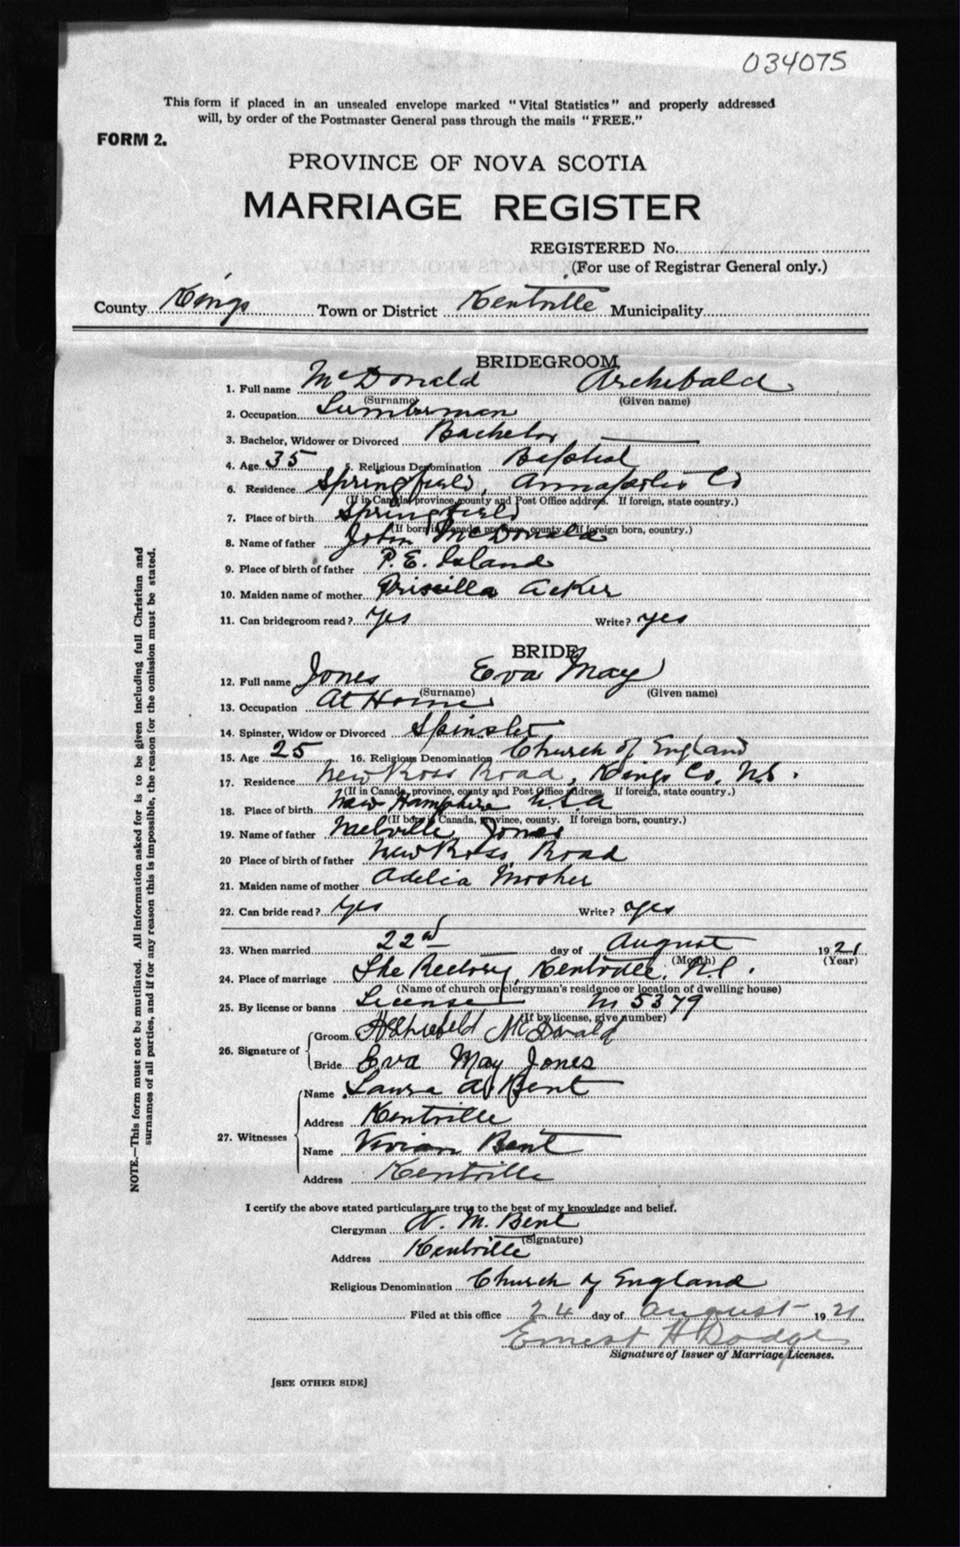 034075
This form if placed in an unsealed envelope marked "Vital Statistics" and properly addressed
will, by order of the Postmaster General pass through the mails "FREE."
FORM 2.
PROVINCE OF NOVA SCOTIA
MARRIAGE REGISTER
REGISTERED No.
(For use of Registrar General only.)
County Kings Town or District Kentville Municipality
BRIDEGROOM
1. Full name McDonald Archibald
(Surname) (Given name)
2. Occupation Lumberman
3. Bachelor, Widower or Divorced Bachelor
4. Age 35 5. Religious Denomination Baptist
6. Residence Springfield, Annapolis Co
(If in Canada, province, county and Post Office address. If foreign, state country.)
7. Place of birth Springfield
(If born in Canada, province, county. If foreign born, country.)
8. Name of father John McDonald
9. Place of birth of father P. E. Island
10. Maiden name of mother Priscilla Acker
11. Can bridegroom read? Yes Write? yes
BRIDE
12. Full name Jones Eva May
(Surname) (Given name)
13. Occupation At Home
14. Spinster, Widow or Divorced Spinster
15. Age 25 16. Religious Denomination Church of England
17. Residence New Ross Road, Kings Co, N.S.
(If in Canada, province, county and Post Office address. If foreign, state country.)
18. Place of birth New Hampshire U.S.A
(If born in Canada, province, county. If foreign born, country.)
19. Name of father Melville Jones
20 Place of birth of father New Ross Road
21. Maiden name of mother Adelia Mosher
22. Can bride read? Yes Write? Yes
23. When married 22nd day of August 1921
(Month) (Year)
24. Place of marriage The Rectory, Kentville, N.S.
(Name of church or clergyman's residence or location of dwelling house)
25. By license or banns License M 5379
(If by license, give number)
26. Signature of Groom McDonald
Bride Eva May Jones
27. Witnesses Name Laura A. Bent
Address Kentville
Name Vivian Bent
Address Kentville
I certify the above stated particulars are true to the best of my knowledge and belief.
Clergyman M. Bent
(Signature)
Address Kentville
Religious Denomination Church of England
Filed at this office 24 day of August 1921
Ernest H Dodge
Signature of Issuer of Marriage Licenses.
[SEE OTHER SIDE]
NOTE.—This form must not be mutilated. All information asked for is to be given including full Christian and
surnames of all parties, and if for any reason this is impossible, the reason for the omission must be stated.